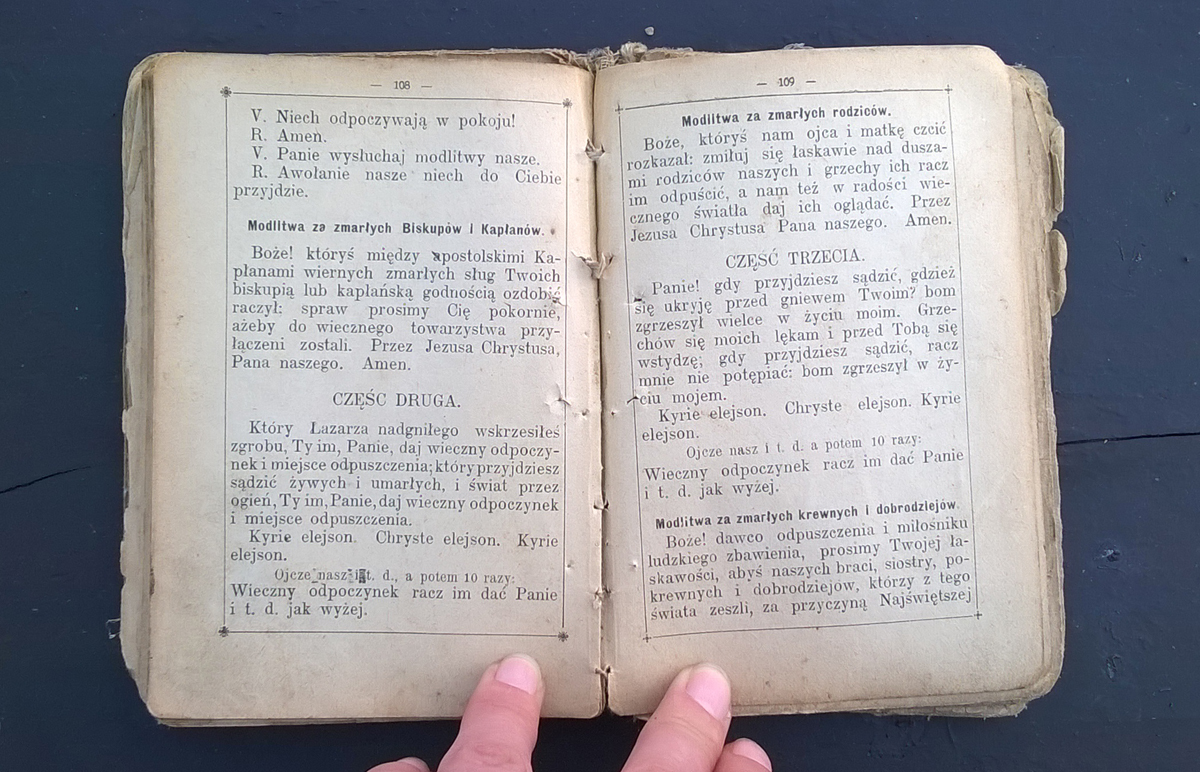 — 108 —
V. Niech odpoczywają w pokoju!
R. Amen.
V. Panie wysłuchaj modlitwy nasze.
R. Awołanie nasze niech do Ciebie
przyjdzie.
Modlitwa za zmarłych Biskupów i Kapłanów.
Boże! któryś między apostolskimi Ka-
płanami wiernych zmarłych sług Twoich
biskupią lub kapłańską godnością ozdobić
raczył: spraw prosimy Cię pokornie,
ażeby do wiecznego towarzystwa przy-
łączeni zostali. Przez Jezusa Chrystusa,
Pana naszego. Amen.
CZĘŚĆ DRUGA.
Który Łazarza nadgniłego wskrzesiłeś
zgrobu, Ty im, Panie, daj wieczny odpoczy-
nek i miejsce odpuszczenia; który przyjdziesz
sądzić żywych i umarłych, i świat przez
ogień, Ty im, Panie, daj wieczny odpoczynek
i miejsce odpuszczenia.
Kyrie elejson. Chryste elejson. Kyrie
elejson.
Ojcze nasz i t. d., a potem 10 razy:
Wieczny odpoczynek racz im dać Panie
i t. d. jak wyżej.
— 109 —
Modlitwa za zmarłych rodziców.
Boże, któryś nam ojca i matkę czcić
rozkazał: zmiłuj się łaskawie nad dusza-
mi rodziców naszych i grzechy ich racz
im odpuścić, a nam też w radości wie-
cznego światła daj ich oglądać. Przez
Jezusa Chrystusa Pana naszego. Amen.
CZĘŚĆ TRZECIA.
Panie! gdy przyjdziesz sądzić, gdzież
się ukryję przed gniewem Twoim? bom
zgrzeszył wielce w życiu moim. Grze-
chów się moich lękam i przed Tobą się
wstydzę; gdy przyjdziesz sądzić, racz
mnie nie potępiać: bom zgrzeszył w ży-
ciu mojem.
Kyrie elejson. Chryste elejson. Kyrie
elejson.
Ojcze nasz i t. d. a potem 10 razy:
Wieczny odpoczynek racz im dać Panie
i t. d. jak wyżej.
Modlitwa za zmarłych krewnych i dobrodziejów
Boże! dawco odpuszczenia i miłośniku
ludzkiego zbawienia, prosimy Twojej ła-
skawości, abyś naszych braci, siostry, po-
krewnych i dobrodziejów, którzy z tego
świata zeszli, za przyczyną Najświętszej